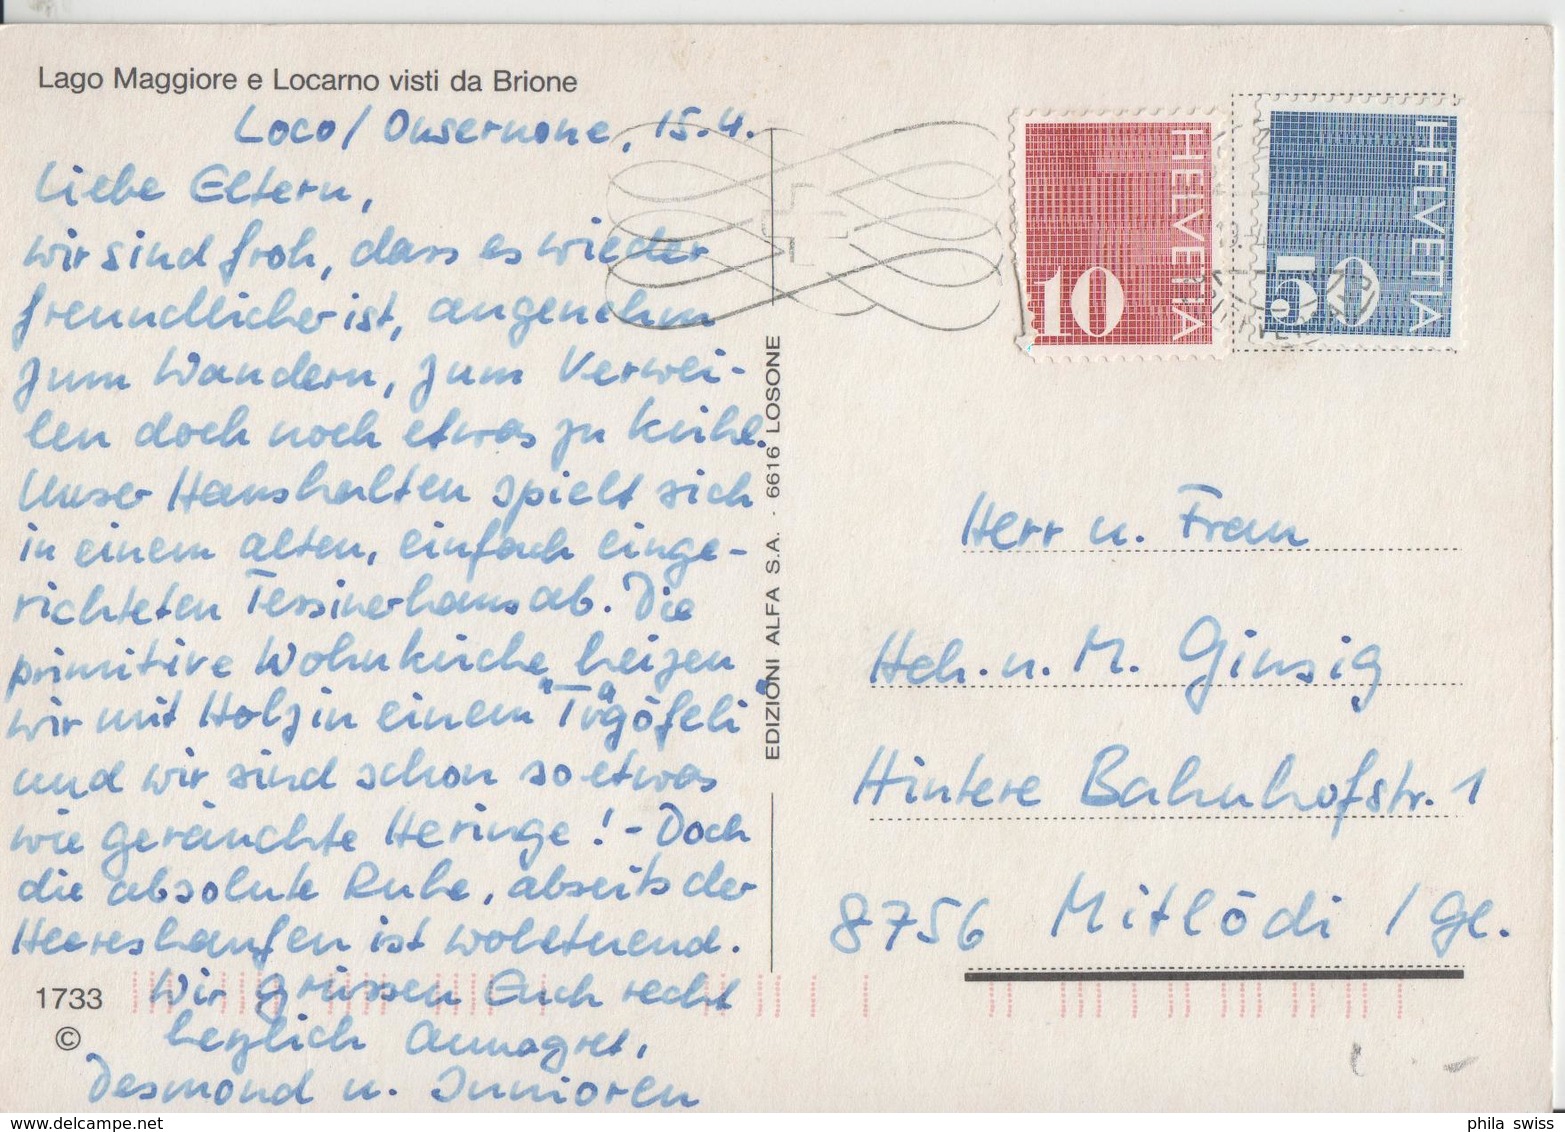 Lago Maggiore e Locarno visti da Brione
Loco/Onsernone, 15.4.
Liebe Eltern,
wir sind froh, dass es wieder
freundlicher ist, angenehm
zum Wandern, zum Verwei-
len doch noch etwas zu kühl.
Unser Haushalten spielt sich
in einem alten, einfach einge-
richteten Tessinerhaus ab. Die
primitive Wohnküche heizen
wir mit Holz in einem "Trägöfeli"
und wir sind schon so etwas
wie geräuchte Heringe! - Doch
die absolute Ruhe, abseits der
Heereshaufen ist wohltuend.
Wir grüssen Euch recht
herzlich Annagret,
Desmond u. Junioren
1733
©
EDIZIONI ALFA S.A. · 6616 LOSONE
HELVETIA
10
HELVETIA
50
Herr u. Frau
Hch. u. M. Ginsig
Hintere Bahnhofstr. 1
8756 Mitlödi /Gl.
phila swiss